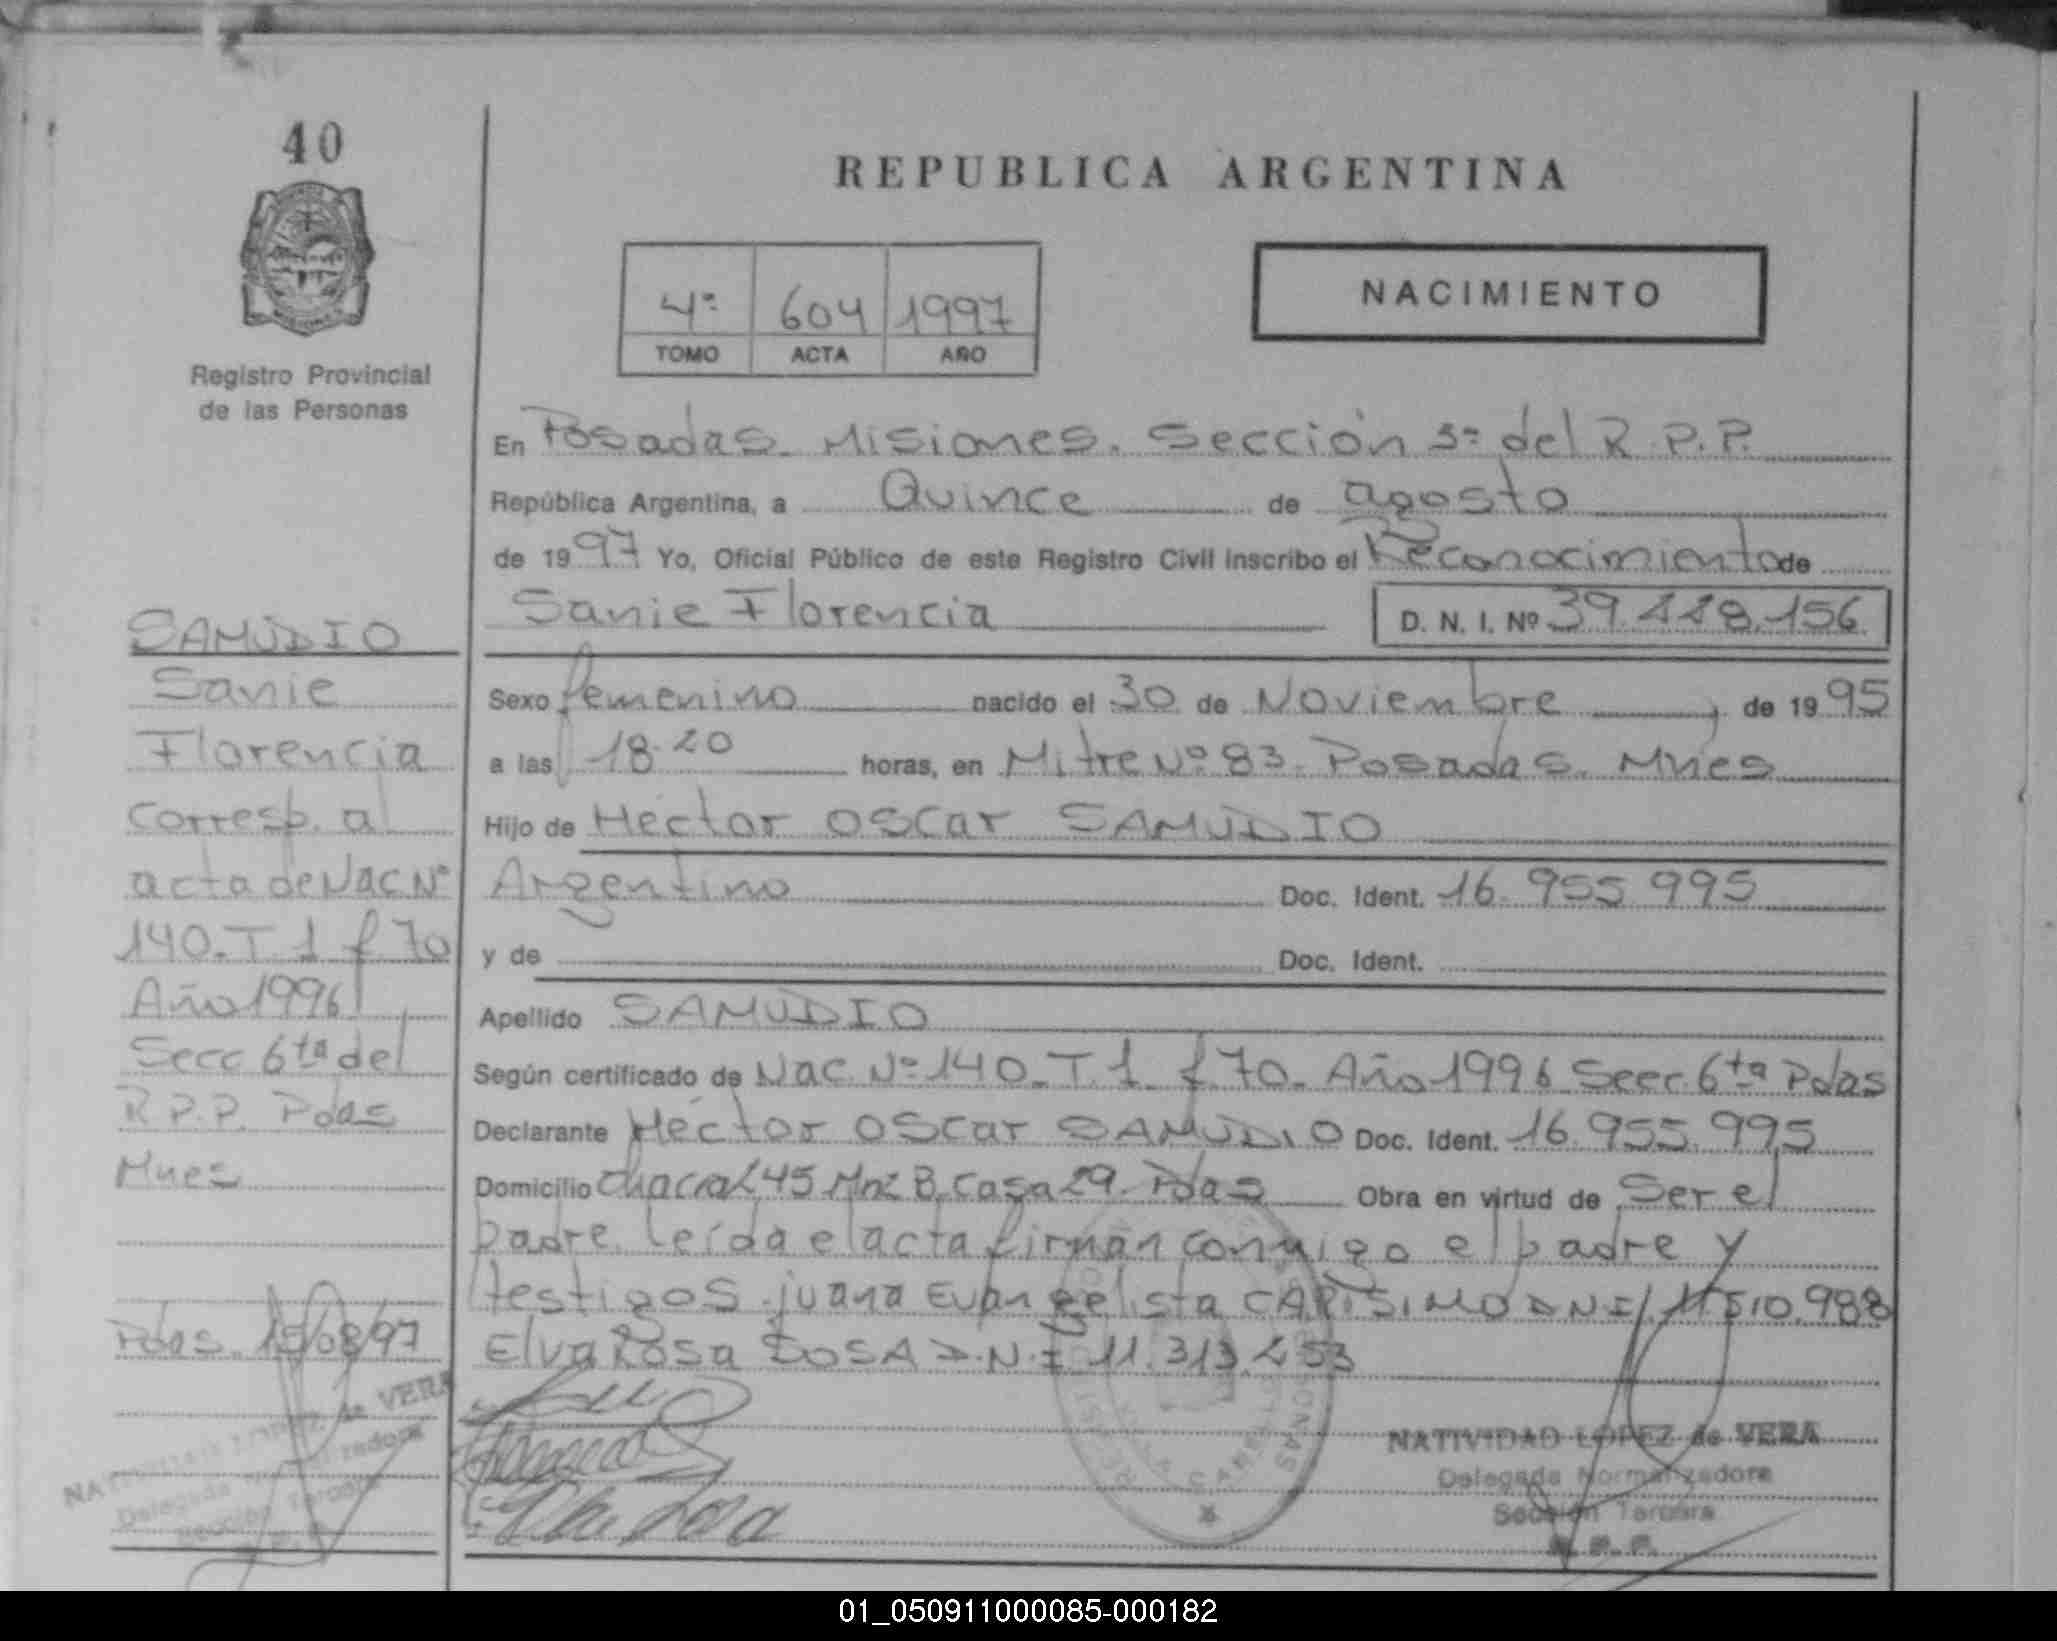 40
Registro Provincial
de las Personas
SAMUDIO
Sanie
Florencia
Corresp. al
acta de Nac Nº
140. T. 1 f 70
Año 1996
Secc 6ta del
R P.P. Pdas
Mnes
Pdas. 15/08/97
NATIVIDAD LOPEZ de VERA
Delegada Normalizadora
Sección Tercera
R. P. P.
REPUBLICA ARGENTINA
4º 604 1997
TOMO ACTA AÑO
NACIMIENTO
En Posadas. Misiones. Sección 3ª del R. P. P.
República Argentina, a Quince de agosto
de 1997 Yo, Oficial Público de este Registro Civil inscribo el Reconocimiento de
Sanie Florencia D. N. I. Nº 39.228.156
Sexo femenino nacido el 30 de Noviembre, de 1995
a las 18.20 horas, en Mitre Nº 83. Posadas. Mnes
Hijo de Héctor Oscar SAMUDIO
Argentino Doc. Ident. 16.955.995
y de Doc. Ident.
Apellido SAMUDIO
Según certificado de Nac. Nº 140. T. 1 f. 70. Año 1996 Secc. 6ta Pdas
Declarante Héctor Oscar SAMUDIO Doc. Ident. 16.955.995
Domicilio Chacra 245 Mnz B. Casa 29. Pdas Obra en virtud de Ser el
padre. Leída el acta firman conmigo el padre y
testigos. juana Evangelista CARISIMO DNI 11.510.988
Elva Rosa SOSA D.N.I 11.313.253
NATIVIDAD LOPEZ de VERA
Delegada Normalizadora
Sección Tercera
R. P. P.
01_050911000085-000182